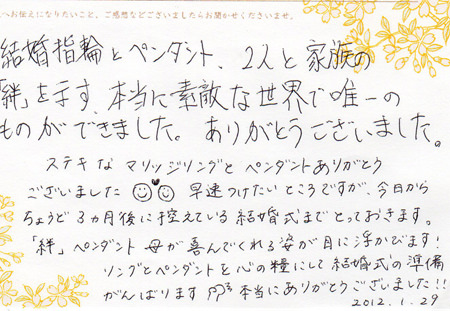 へお伝えになりたいこと、ご感想などございましたらお聞かせくださいませ。
結婚指輪とペンダント、2人と家族の
「絆」を示す、本当に素敵な世界で唯一の
ものができました。ありがとうございました。
ステキな マリッジリングと ペンダントありがとう
ございました 早速つけたい ところですが、今日から
ちょうど 3ヵ月後に控えている 結婚式まで とっておきます。
「絆」ペンダント 母が喜んでくれる姿が目に浮かびます!
リングとペンダントを心の糧にして 結婚式の準備
がんばります 本当にありがとうございました!!
2012.1.29